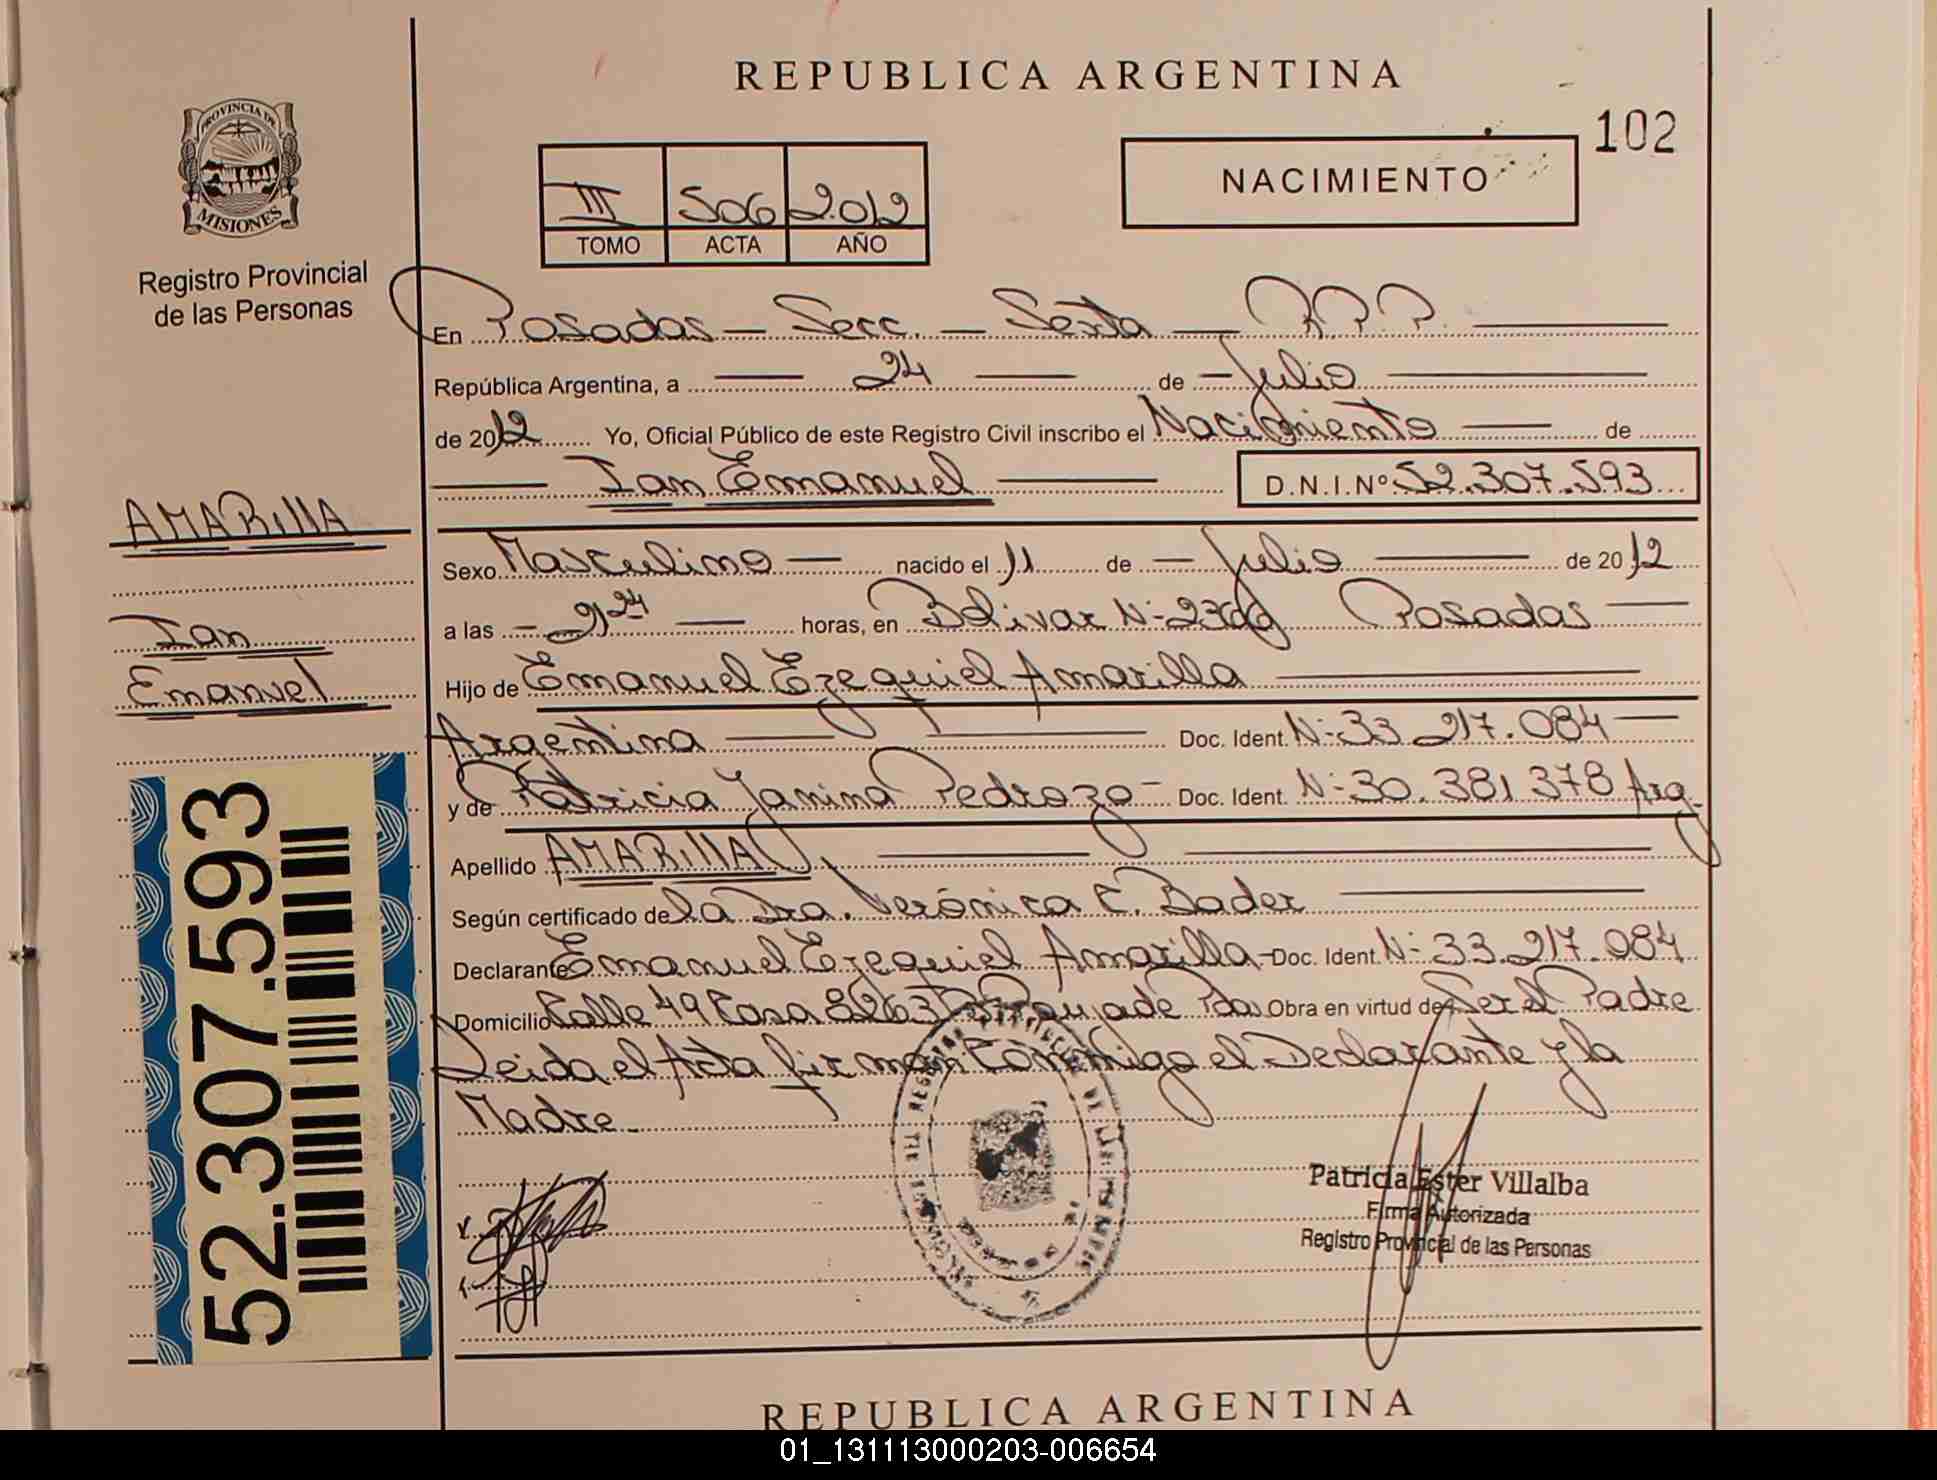 REPUBLICA ARGENTINA
102
PROVINCIA DE
MISIONES
Registro Provincial
de las Personas
III 506 2012
TOMO ACTA AÑO
NACIMIENTO
En Posadas - Secc. - Sexta - R.P.P.
República Argentina, a 24 de Julio
de 2012 Yo, Oficial Público de este Registro Civil inscribo el Nacimiento de
Ian Emanuel D.N.I.Nº 52.307.593
AMARILLA
Ian
Emanuel
Sexo Masculino nacido el 11 de Julio de 2012
a las 21 24 horas, en Bolivar Nº Posadas
Hijo de Emanuel Ezequiel Amarilla
Argentina Doc. Ident. Nº 33.217.084
y de Patricia Janina Pedrozo - Doc. Ident. Nº 30.381.378 Arg.
Apellido AMARILLA
Según certificado de la Dra. Verónica C. Bader
Declarante Emanuel Ezequiel Amarilla - Doc. Ident. Nº 33.217.084
Domicilio Calle 49 Casa Obra en virtud de Ser el Padre
Leida el Acta firman Conmigo el Declarante y la
Madre.
52.307.593
Patricia Ester Villalba
Firma Autorizada
Registro Provincial de las Personas
REPUBLICA ARGENTINA
01_131113000203-006654